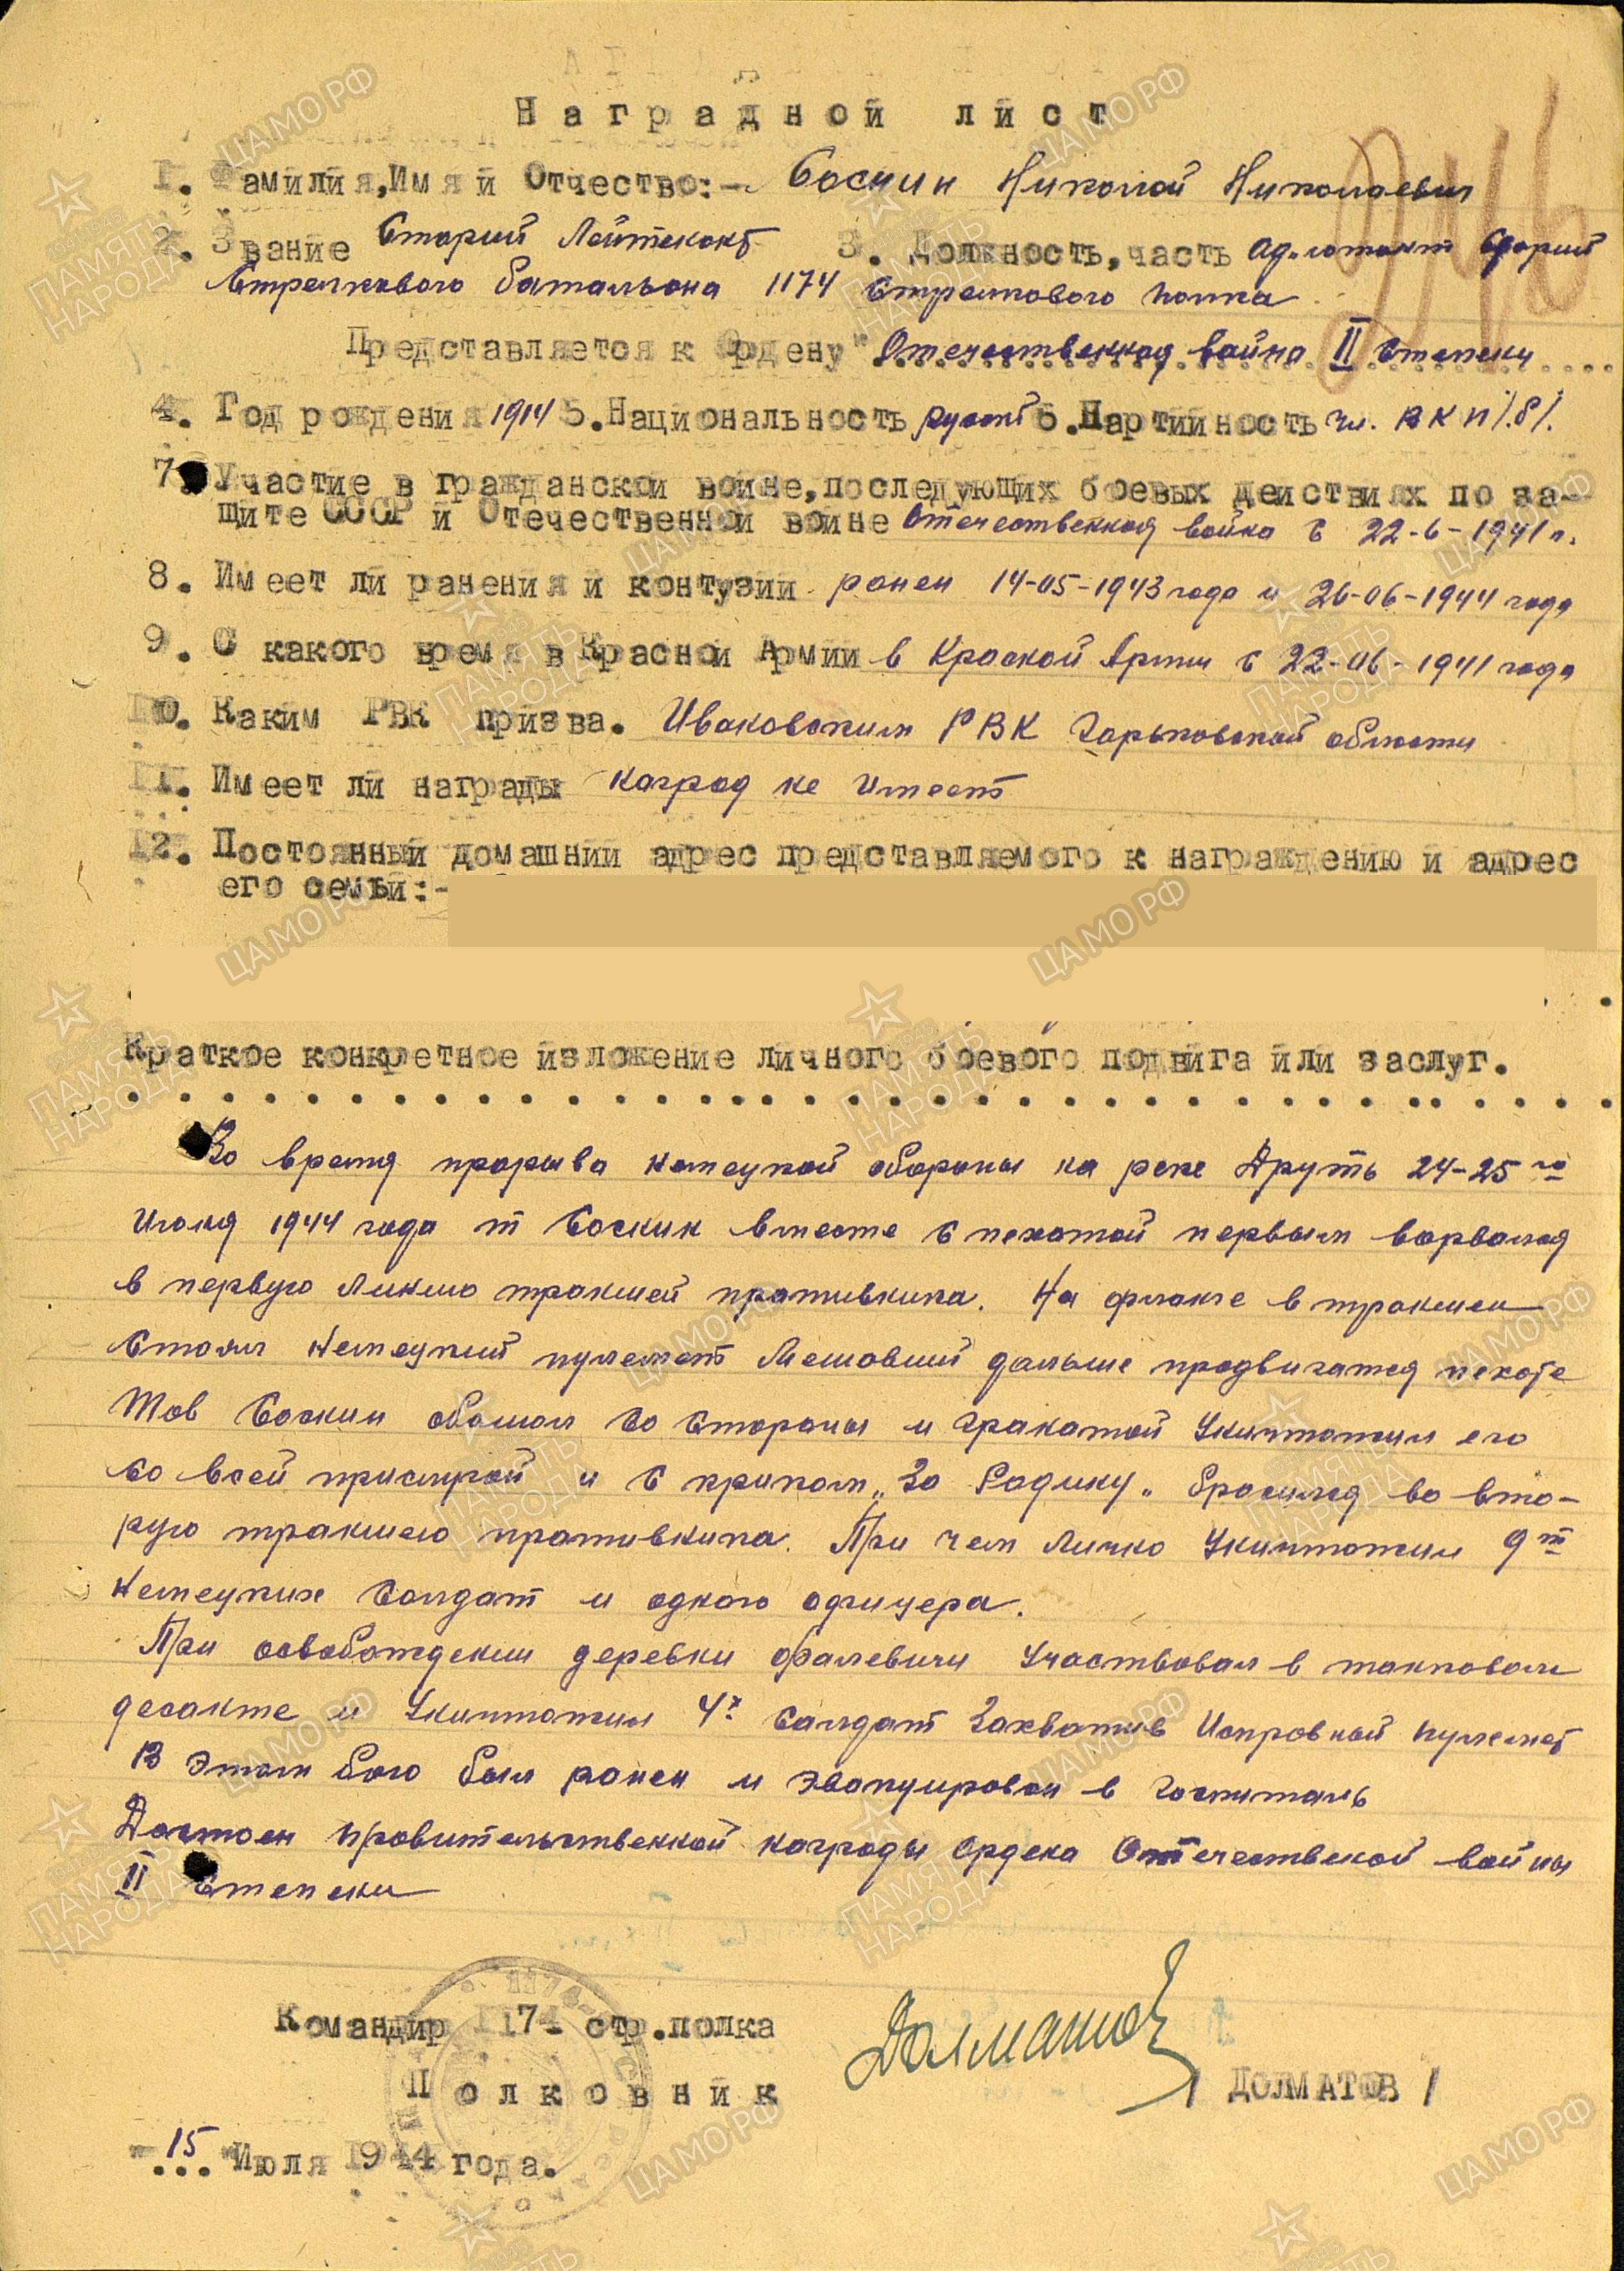 Наградной лист
1. Фамилия, Имя и Отчество:- Соснин Николай Николаевич
2. Звание Старший Лейтенант 3. Должность, часть адъютант Старший
Стрелкового батальона 1174 Стрелкового полка
Представляется к Ордену "Отечественная война II Степени
4. Год рождения 1914 5. Национальность русский 6. Партийность чл. ВКП/б/.
7. Участие в гражданской войне, последующих боевых действиях по за-
щите СССР и Отечественной войне Отечественная война с 22-6-1941 г.
8. Имеет ли ранения и контузии ранен 14-05-1943 года и 26-06-1944 года
9. С какого время в Красной Армии в Красной Армии с 22-06-1941 года
10. Каким РВК призва. Ивановским РВК Горьковской области
11. Имеет ли награды наград не имеет
12. Постоянный домашний адрес представляемого к награждению и адрес
его семьи:-
Краткое конкретное изложение личного боевого подвига или заслуг.
Во время прорыва немецкой обороны на реке Друть 24-25го
Июня 1944 года т Соснин вместе с пехотой первым ворвался
в первую линию траншей противника. На фланге в траншеи
Стоял Немецкий пулемет Мешавший дальше продвигатся пехоте
Тов Соснин обошол со стороны и гранатой Уничтожил его
со всей прислугой и с криком "За Родину" бросился во вто-
рую траншею противника. При чем Лично Уничтожил 9т
Немецких Солдат и одного офицера.
При освобождении деревни Фалевичи Участвовал в танковом
десанте и Уничтожил 4х солдат Захватив Исправный пулемет
В этом бою был ранен и эвакуирован в госпиталь
Достоен правительственной награды Ордена Отечественой войны
II Степени
Командир 1174 стр. полка
Полковник
/ ДОЛМАТОВ /
"15" Июля 1944 года.
ЦАМО РФ
ПАМЯТЬ НАРОДА